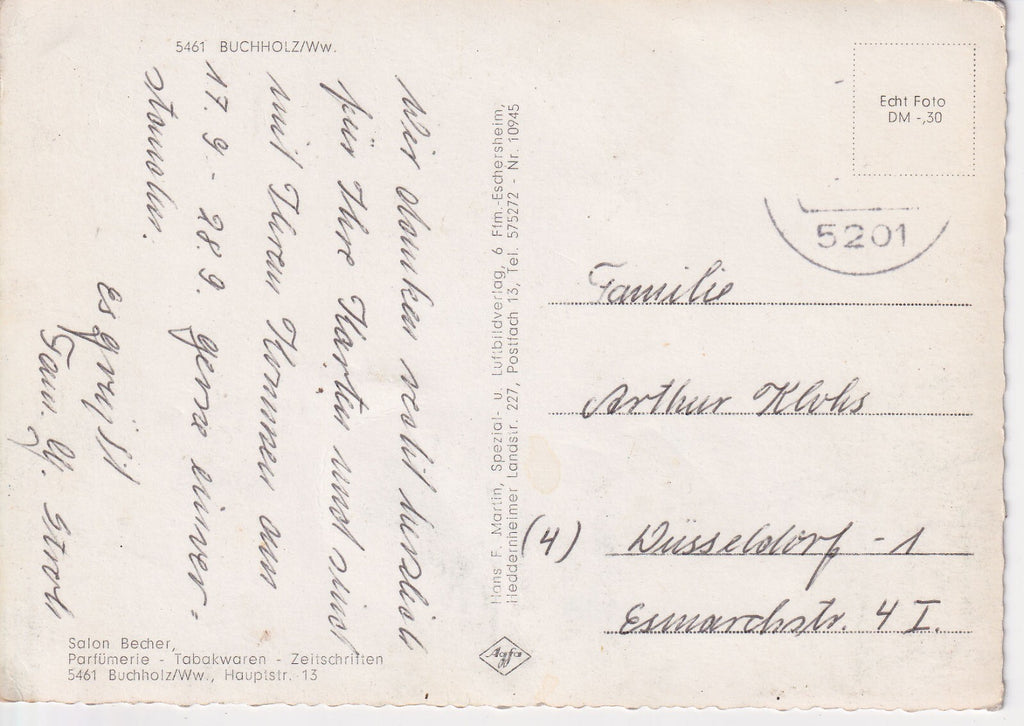 5461 BUCHHOLZ/Ww.
Wir danken recht herzlich
für Ihre Karten und sind
mit Ihrem Kommen am
17. 9 - 28 9. gerne einver-
standen.
Es grüßt
Fam.
Salon Becher,
Parfümerie - Tabakwaren - Zeitschriften
5461 Buchholz/Ww., Hauptstr. 13
Hans F. Martin, Spezial- u. Luftbildverlag, 6 Ffm.-Eschersheim,
Heddernheimer Landstr. 227, Postfach 13, Tel. 575272 - Nr. 10945
Agfa
Echt Foto
DM -,30
5201
Familie
Arthur Klohs
(4) Düsseldorf - 1
Esmarchstr. 4 I.